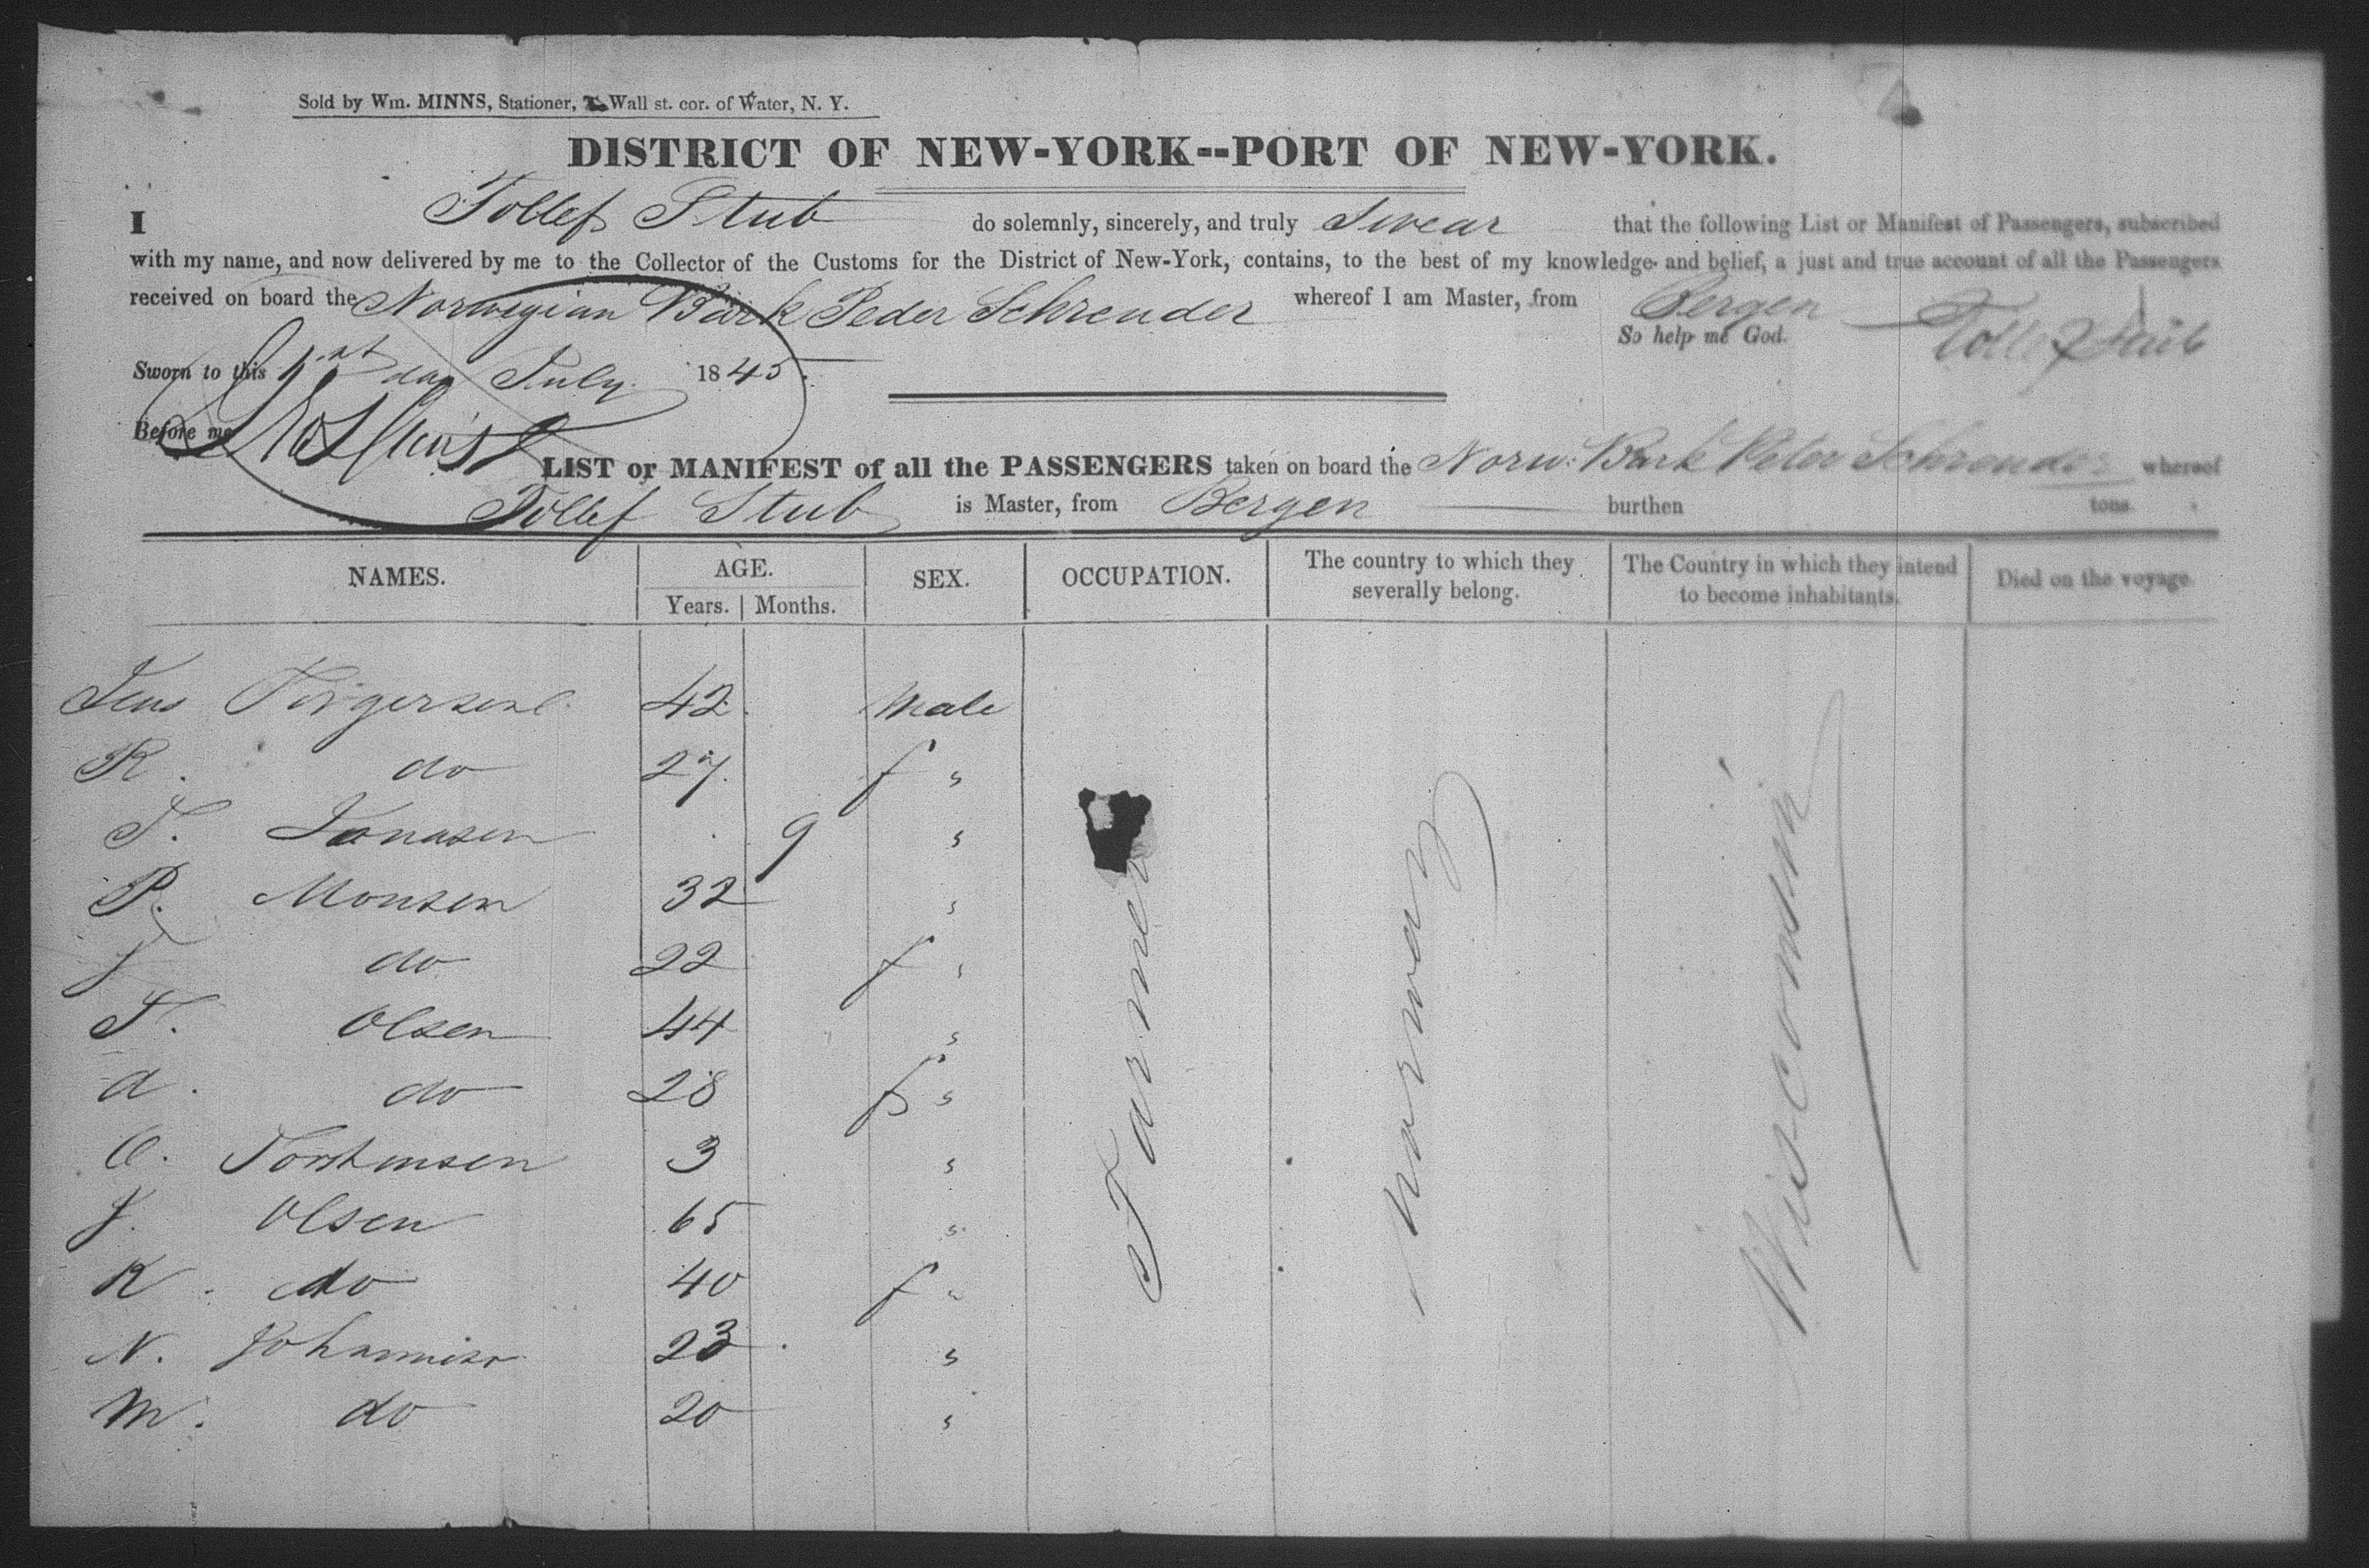 Sold by Wm. MINNS, Stationer, Wall st. cor. of Water, N. Y.
DISTRICT OF NEW-YORK--PORT OF NEW-YORK.
I Tollef Stub do solemnly, sincerely, and truly Swear that the following List or Manifest of Passengers, subscribed
with my name, and now delivered by me to the Collector of the Customs for the District of New-York, contains, to the best of my knowledge and belief, a just and true account of all the Passengers
received on board the Norwegian Bark Peder Schreuder whereof I am Master, from Bergen
So help me God. Tollef Stub
Sworn to this 1st day July 1845.
Before me
LIST or MANIFEST of all the PASSENGERS taken on board the Norw. Bark Peter Schreuder whereof
Tollef Stub is Master, from Bergen burthen tons.
NAMES. AGE. Years. Months. SEX. OCCUPATION. The country to which they severally belong. The Country in which they intend to become inhabitants. Died on the voyage.
Jens Torgersen 42 Male
R. do 27 f "
T. Jonasen 9 "
P. Monsen 32 "
J do 22 f "
T. Olsen 44 "
A. do 28 f "
O. Torstensen 3 "
J. Olsen 65 "
K. do 40 f "
N. Johannis 23 "
M. do 20 "
Farmer
Norway
Wisconsin